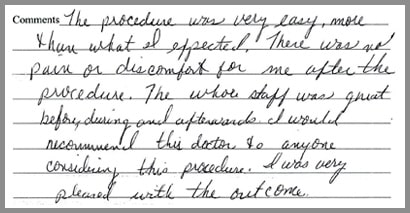 Comments The procedure was very easy, more
than what I expected. There was no
pain or discomfort for me after the
procedure. The whole staff was great
before, during and afterwards. I would
recommend this doctor to anyone
considering this procedure. I was very
pleased with the outcome.